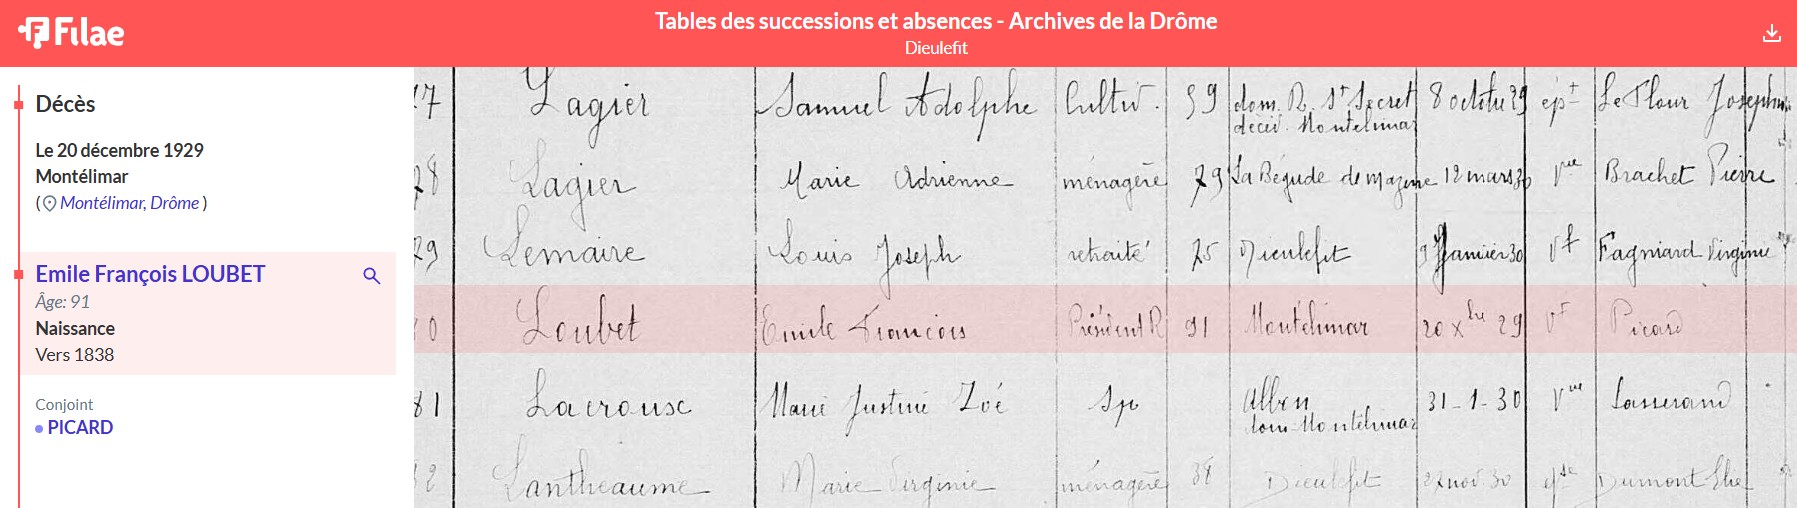 Filae
Tables des successions et absences - Archives de la Drôme
Dieulefit
Décès
Le 20 décembre 1929
Montélimar
(Montélimar, Drôme )
Emile François LOUBET
Âge: 91
Naissance
Vers 1838
Conjoint
PICARD
77 Lagier Samuel Adolphe Cultiv. 59 dom. R. St Secret 8 octobre 29 épx Le Flour Joséphine
décéd. Montélimar
78 Lagier Marie Adrienne ménagère 79 La Bégude de Mazenc 12 mars 30 Vve Brachet Pierre
79 Lemaire Louis Joseph retraité 75 Dieulefit janvier 30 Vf Fagniard Virginie
80 Loubet Emile François Président R 91 Montélimar 20 Xbre 29 Vf Picard
81 Lacrouse Marie Justine Zoé Sp 31-1-30 Vve
dom. Montélimar
82 Lantheaume Marie Virginie ménagère 38 Dieulefit 27 nov 30 épse Dumont Elie